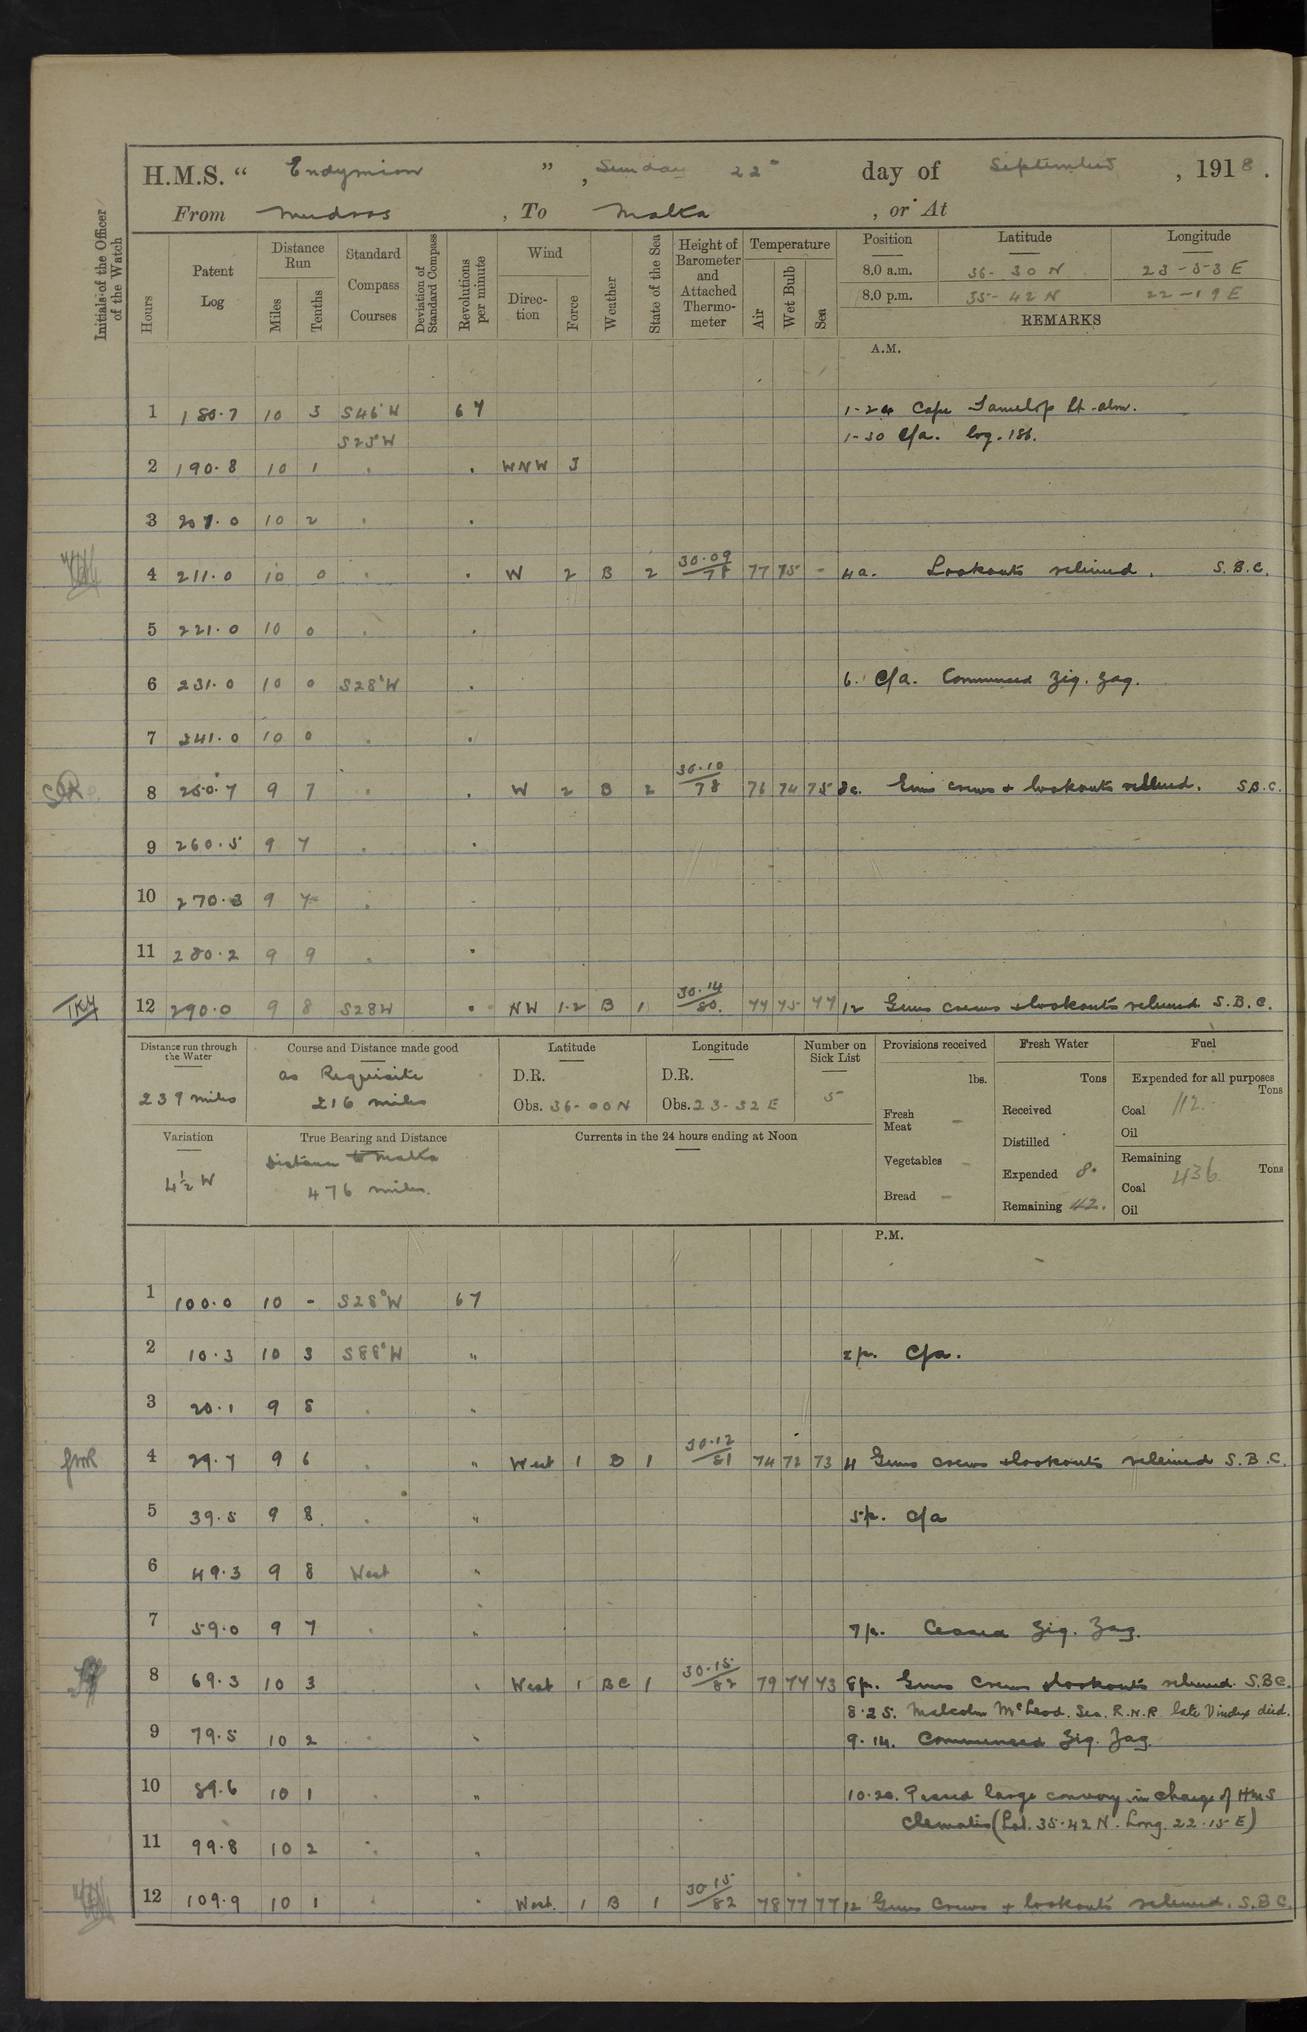 H.M.S. “ Endymion ”, Sunday 22ⁿ day of September, 1918.
From Mudros, To Malta, or At
Initials of the Officer of the Watch
Hours Patent Log Distance Run Miles Tenths Standard Compass Courses Deviation of Standard Compass Revolutions per minute Wind Direction Force Weather State of the Sea Height of Barometer and Attached Thermometer Temperature Air Wet Bulb Sea Position Latitude Longitude
8.0 a.m. 36-30 N 23-53 E
8.0 p.m. 35-42 N 22-19 E
REMARKS
A.M.
1 180.7 10 3 S46°W 67 1-24 Cape Lt. abm.
S25°W 1-30 C/a. log. 186.
2 190.8 10 1 . . WNW 3
3 201.0 10 2 . .
4 211.0 10 0 . . W 2 B 2 30.09/78 77 75 - 4a. Lookouts relieved. S.B.C.
5 221.0 10 0 . .
6 231.0 10 0 S28°W . 6. C/a. Commenced Zig. Zag.
7 241.0 10 0 . .
8 250.7 9 7 . . W 2 B 2 30.10/78 76 74 75 8a. Guns crews + lookouts relieved. S.B.C.
9 260.5 9 7 . .
10 270.3 9 7 . .
11 280.2 9 9 . .
12 290.0 9 8 S28W . NW 1-2 B 1 30.14/80. 77 75 77 12 Guns crews + lookouts relieved S.B.C.
Distance run through the Water Course and Distance made good Latitude Longitude Number on Sick List Provisions received Fresh Water Fuel
239 miles as Requisite 216 miles D.R. D.R. 5 lbs. Tons Expended for all purposes Tons
Obs. 36-00N Obs. 23-32 E Fresh Meat - Received Coal 112.
Variation True Bearing and Distance Currents in the 24 hours ending at Noon Distilled Oil
4½ W Distance to Malta Vegetables - Expended 8. Remaining Tons
476 miles. Bread - Remaining 42. Coal 436
Oil
P.M.
1 100.0 10 - S28°W 67
2 10.3 10 3 S88°W " 2p. C/a.
3 20.1 9 8 . "
4 29.7 9 6 . " West 1 B 1 30.12/81 74 72 73 4 Guns crews + lookouts relieved S.B.C.
5 39.5 9 8. . " 5p. C/a
6 49.3 9 8 West "
7 59.0 9 7 . " 7p. Ceased Zig. Zag.
8 69.3 10 3 . West 1 BC 1 30.15/82 79 77 73 8p. Guns Crews + lookouts relieved. S.B.C.
8.25. Malcolm McLeod. Sea. R.N.R. late Vindex died.
9 79.5 10 2 . " 9.14. Commenced Zig. Zag.
10 89.6 10 1 . " 10.20. Passed large convoy in charge of HMS
Clematis (Lat. 35.42 N. Long. 22.15 E)
11 99.8 10 2 . "
12 109.9 10 1 . " West. 1 B 1 30.15/82 78 77 77 12 Guns Crews + lookouts relieved. S.B.C.